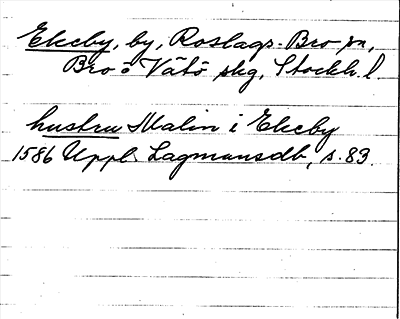 Ekeby, by, Roslags-Bro sn,
Bro o Vätö skg, Stockh. l.
hustru Malin i Ekeby
1586 Uppl. Lagmansdb, s. 83.